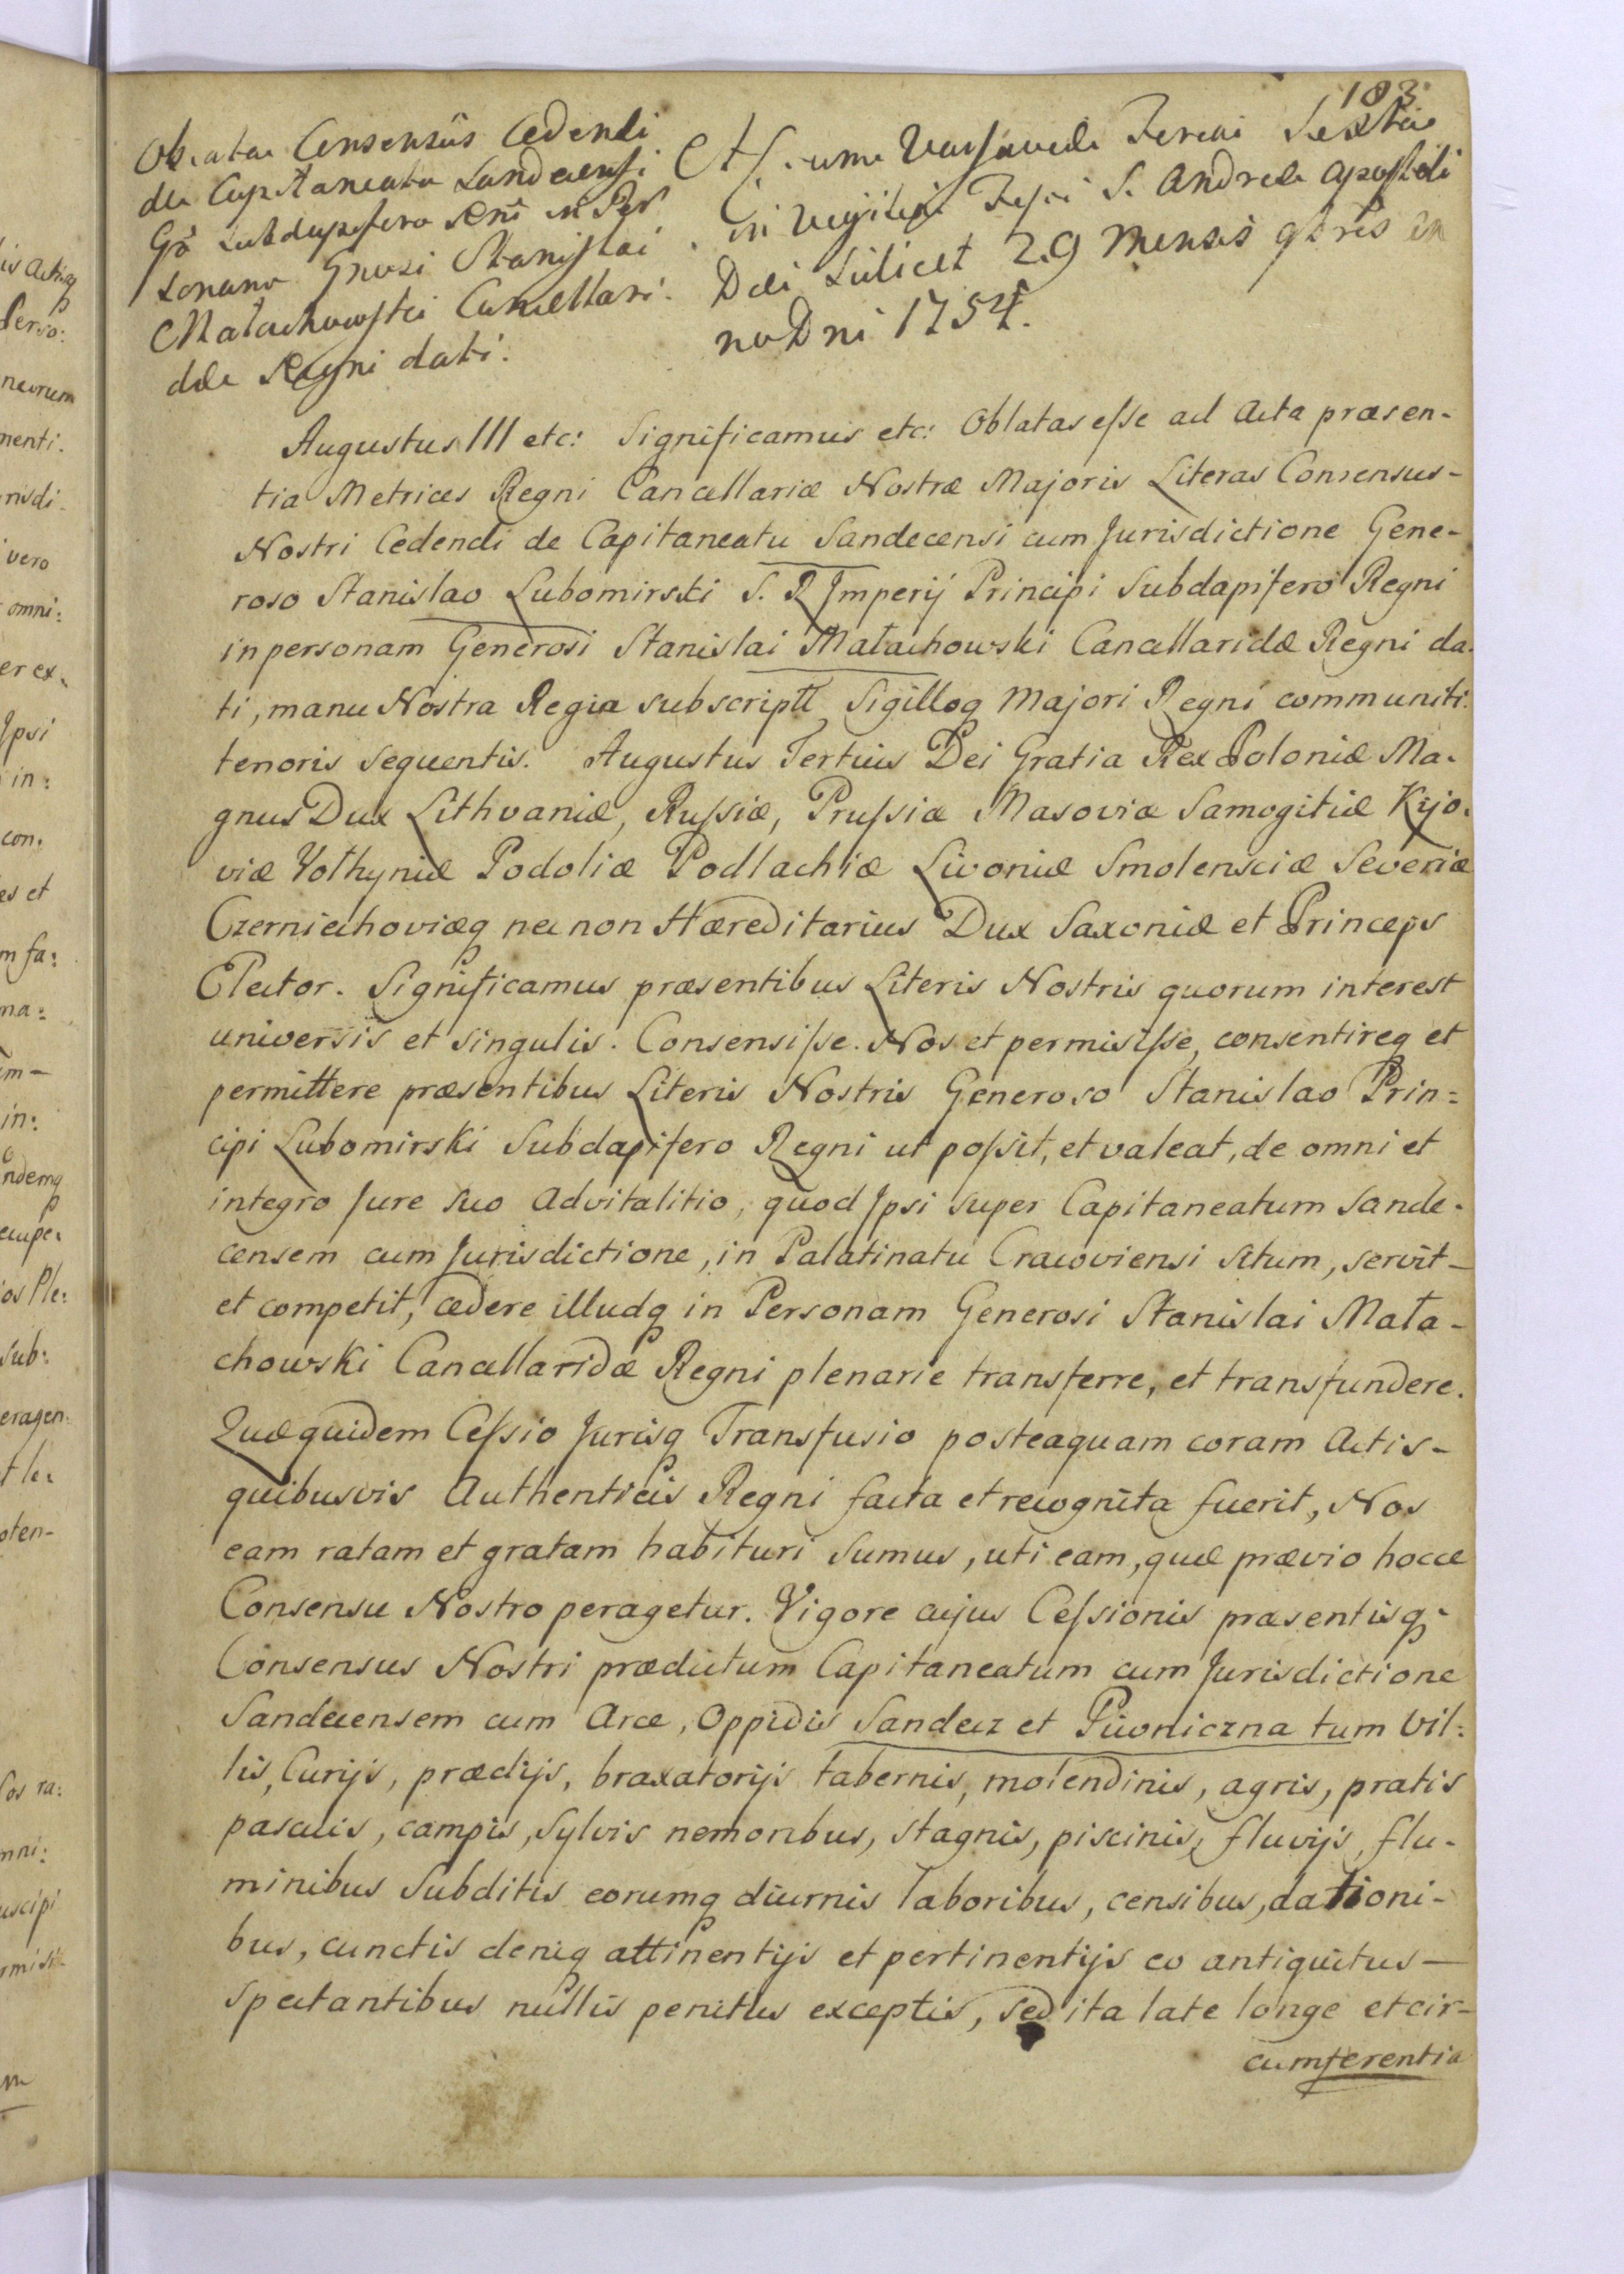 183
Oblatae Consensûs Cedendi
de Capitaneatu Sandecensi
Gso Subdapifero Regni in Per
sonam Gnosi Stanislai
Małachowski Cancellari-
dae Regni dati.
Actum Varsaviae Feria Sexta
in Vigilia Festi S. Andreae Apostoli
Die scilicet 29 Mensis 9bris An
no Dni 1754.
Augustus III etc: Significamus etc: Oblatas eſse ad Acta præsen-
tia Metrices Regni Cancellariæ Nostræ Majoris Literas Consensus-
Nostri Cedendi de Capitaneatu Sandecensi cum Jurisdictione Gene-
roso Stanislao Lubomirski S. R Jmperij Principi Subdapifero Regni
in personam Generosi Stanislai Małachowski Cancellaridæ Regni da-
ti, manu Nostra Regia subscripti Sigilloq Majori Regni communiti
tenoris sequentis. Augustus Tertius Dei Gratia Rex Poloniæ Ma-
gnus Dux Lithvaniæ, Ruſsiæ, Pruſsiæ Masoviæ Samogitiæ Kijo-
viæ Volhyniæ Podoliæ Podlachiæ Livoniæ Smolensciæ Severiæ
Czerniechoviæq nec non Hæreditarius Dux Saxoniæ et Princeps
Elector. Significamus præsentibus Literis Nostris quorum interest
universis et singulis. Consensiſse Nos et permisiſse, consentireq et
permittere præsentibus Literis Nostris Generoso Stanislao Prin=
cipi Lubomirski Subdapifero Regni ut poſsit, et valeat, de omni et
integro Jure suo Advitalitio, quod Jpsi super Capitaneatum Sande-
censem cum Jurisdictione, in Palatinatu Cracoviensi situm, servit-
et competit, cedere illudq in Personam Generosi Stanislai Mała-
chowski Cancellaridæ Regni plenarie transferre, et transfundere.
Quæquidem Ceſsio Jurisq Transfusio posteaquam coram Actis-
quibusvis Authenticis Regni facta et recognita fuerit, Nos
eam ratam et gratam habituri sumus, uti eam, quæ prævio hocce
Consensu Nostro peragetur. Vigore cujus Ceſsionis præsentisq-
Consensus Nostri prædictum Capitaneatum cum Jurisdictione
Sandecensem cum Arce, Oppidis Sandecz et Piwniczna tum Vil:
lis, Curijs, prædijs, braxatorijs tabernis, molendinis, agris, pratis
pascuis, campis, sylvis nemoribus, stagnis, piscinis, fluvijs, flu-
minibus Subditis eorumq diurnis laboribus, censibus, dationi-
bus, cunctis deniq attinentijs et pertinentijs eo antiquitus—
spectantibus nullis penitus exceptis, sed ita late longe et cir-
cumferentia